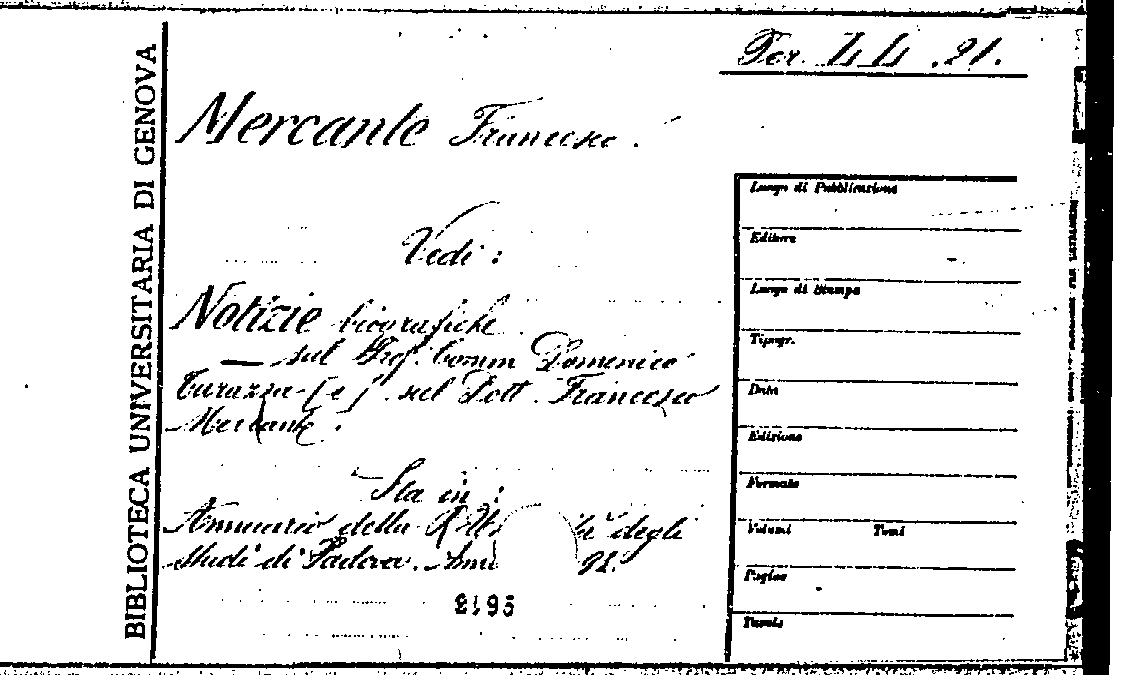 Per. LL. 21.
BIBLIOTECA UNIVERSITARIA DI GENOVA
Mercante Francesco.
Vedi:
Notizie biografiche
— sul Prof. Comm Domenico
Turazza [e] sul Dott. Francesco
Mercante.
Sta in:
Annuario della R. degli
studi di Padova.
2195
Luogo di Pubblicazione
Editore
Luogo di Stampa
Tipogr.
Data
Edizione
Formato
Volumi Tomi
Pagine
Tavole